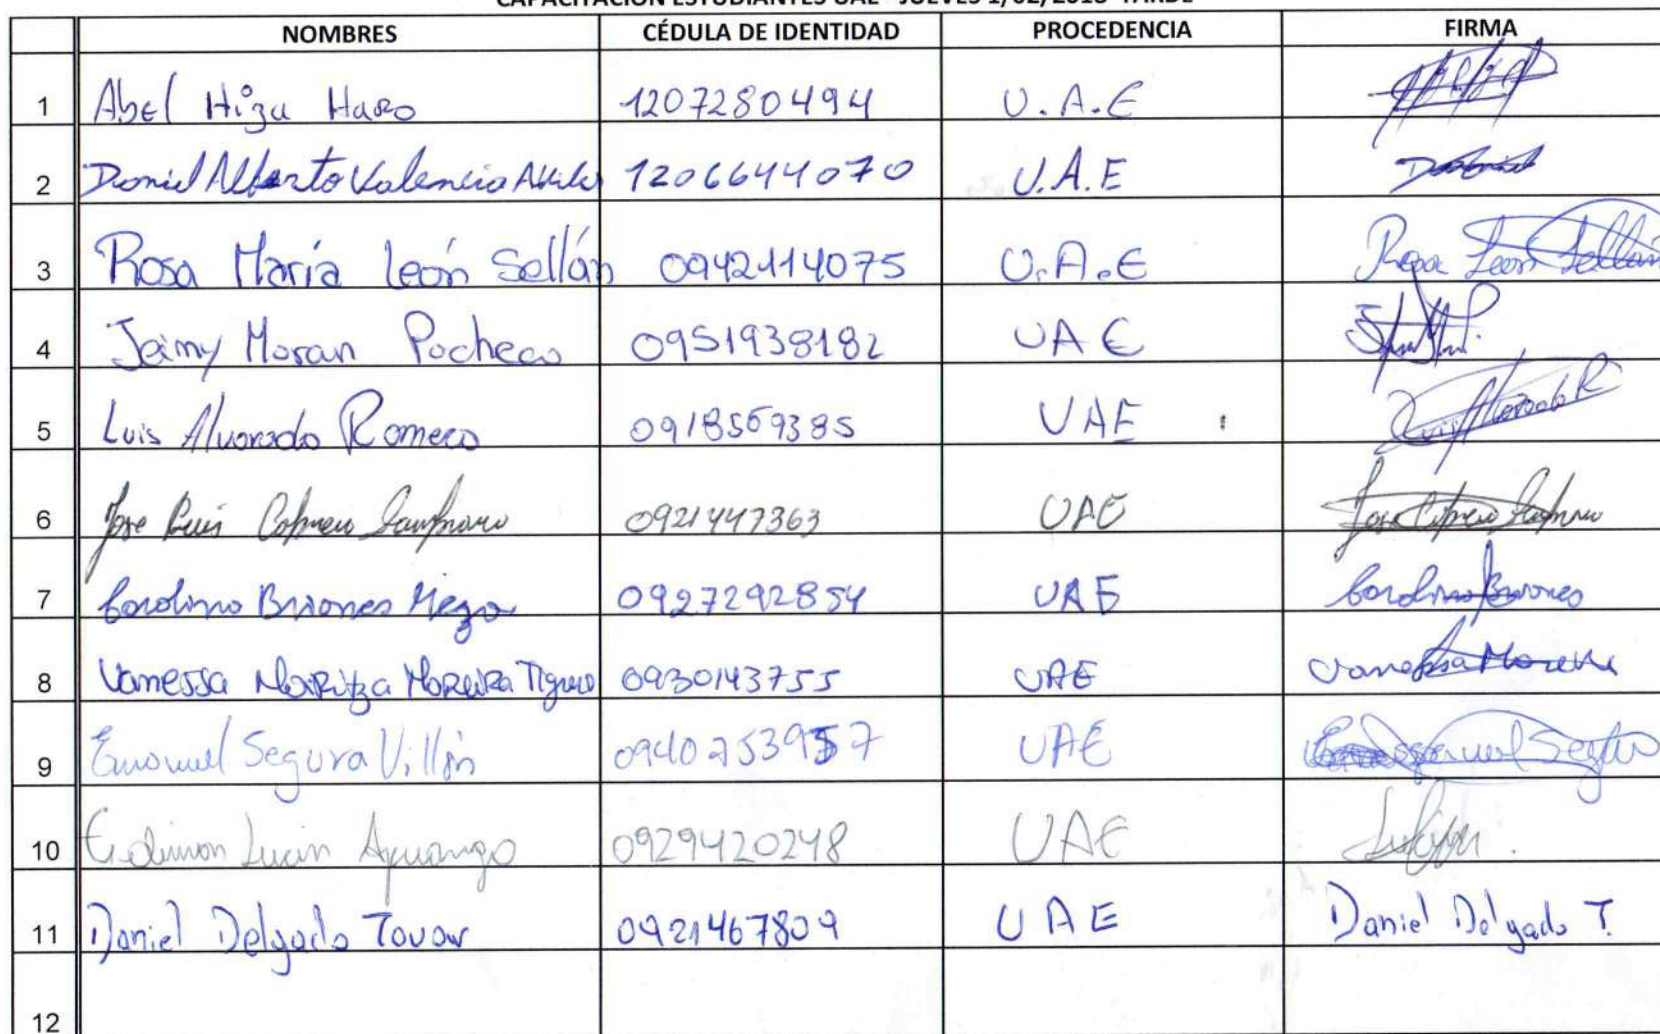 CAPACITACIÓN ESTUDIANTES UAE - JUEVES 1/02/2018 TARDE
NOMBRES CÉDULA DE IDENTIDAD PROCEDENCIA FIRMA
1 Abel Hiza Haro 1207280494 U.A.E
2 Daniel Alberto Valencia 1206644070 U.A.E
3 Rosa María León Sellán 0942114075 U.A.E Rosa León Sellán
4 Jeimy Moran Pacheco 0951938182 UAE
5 Luis Alvarado Romero 0918569385 UAE Luis Alvarado R
6 Jose Luis 0921447363 UAE Jose
7 Carolina Briones Meza 0927292854 UAE Carolina Briones
8 Vanessa Maritza Moreira 0930143755 UAE Vanessa Moreira
9 Emanuel Segura Villón 0940253957 UAE
10 Lucin 0929420248 UAE
11 Daniel Delgado Tovar 0921467809 UAE Daniel Delgado T.
12